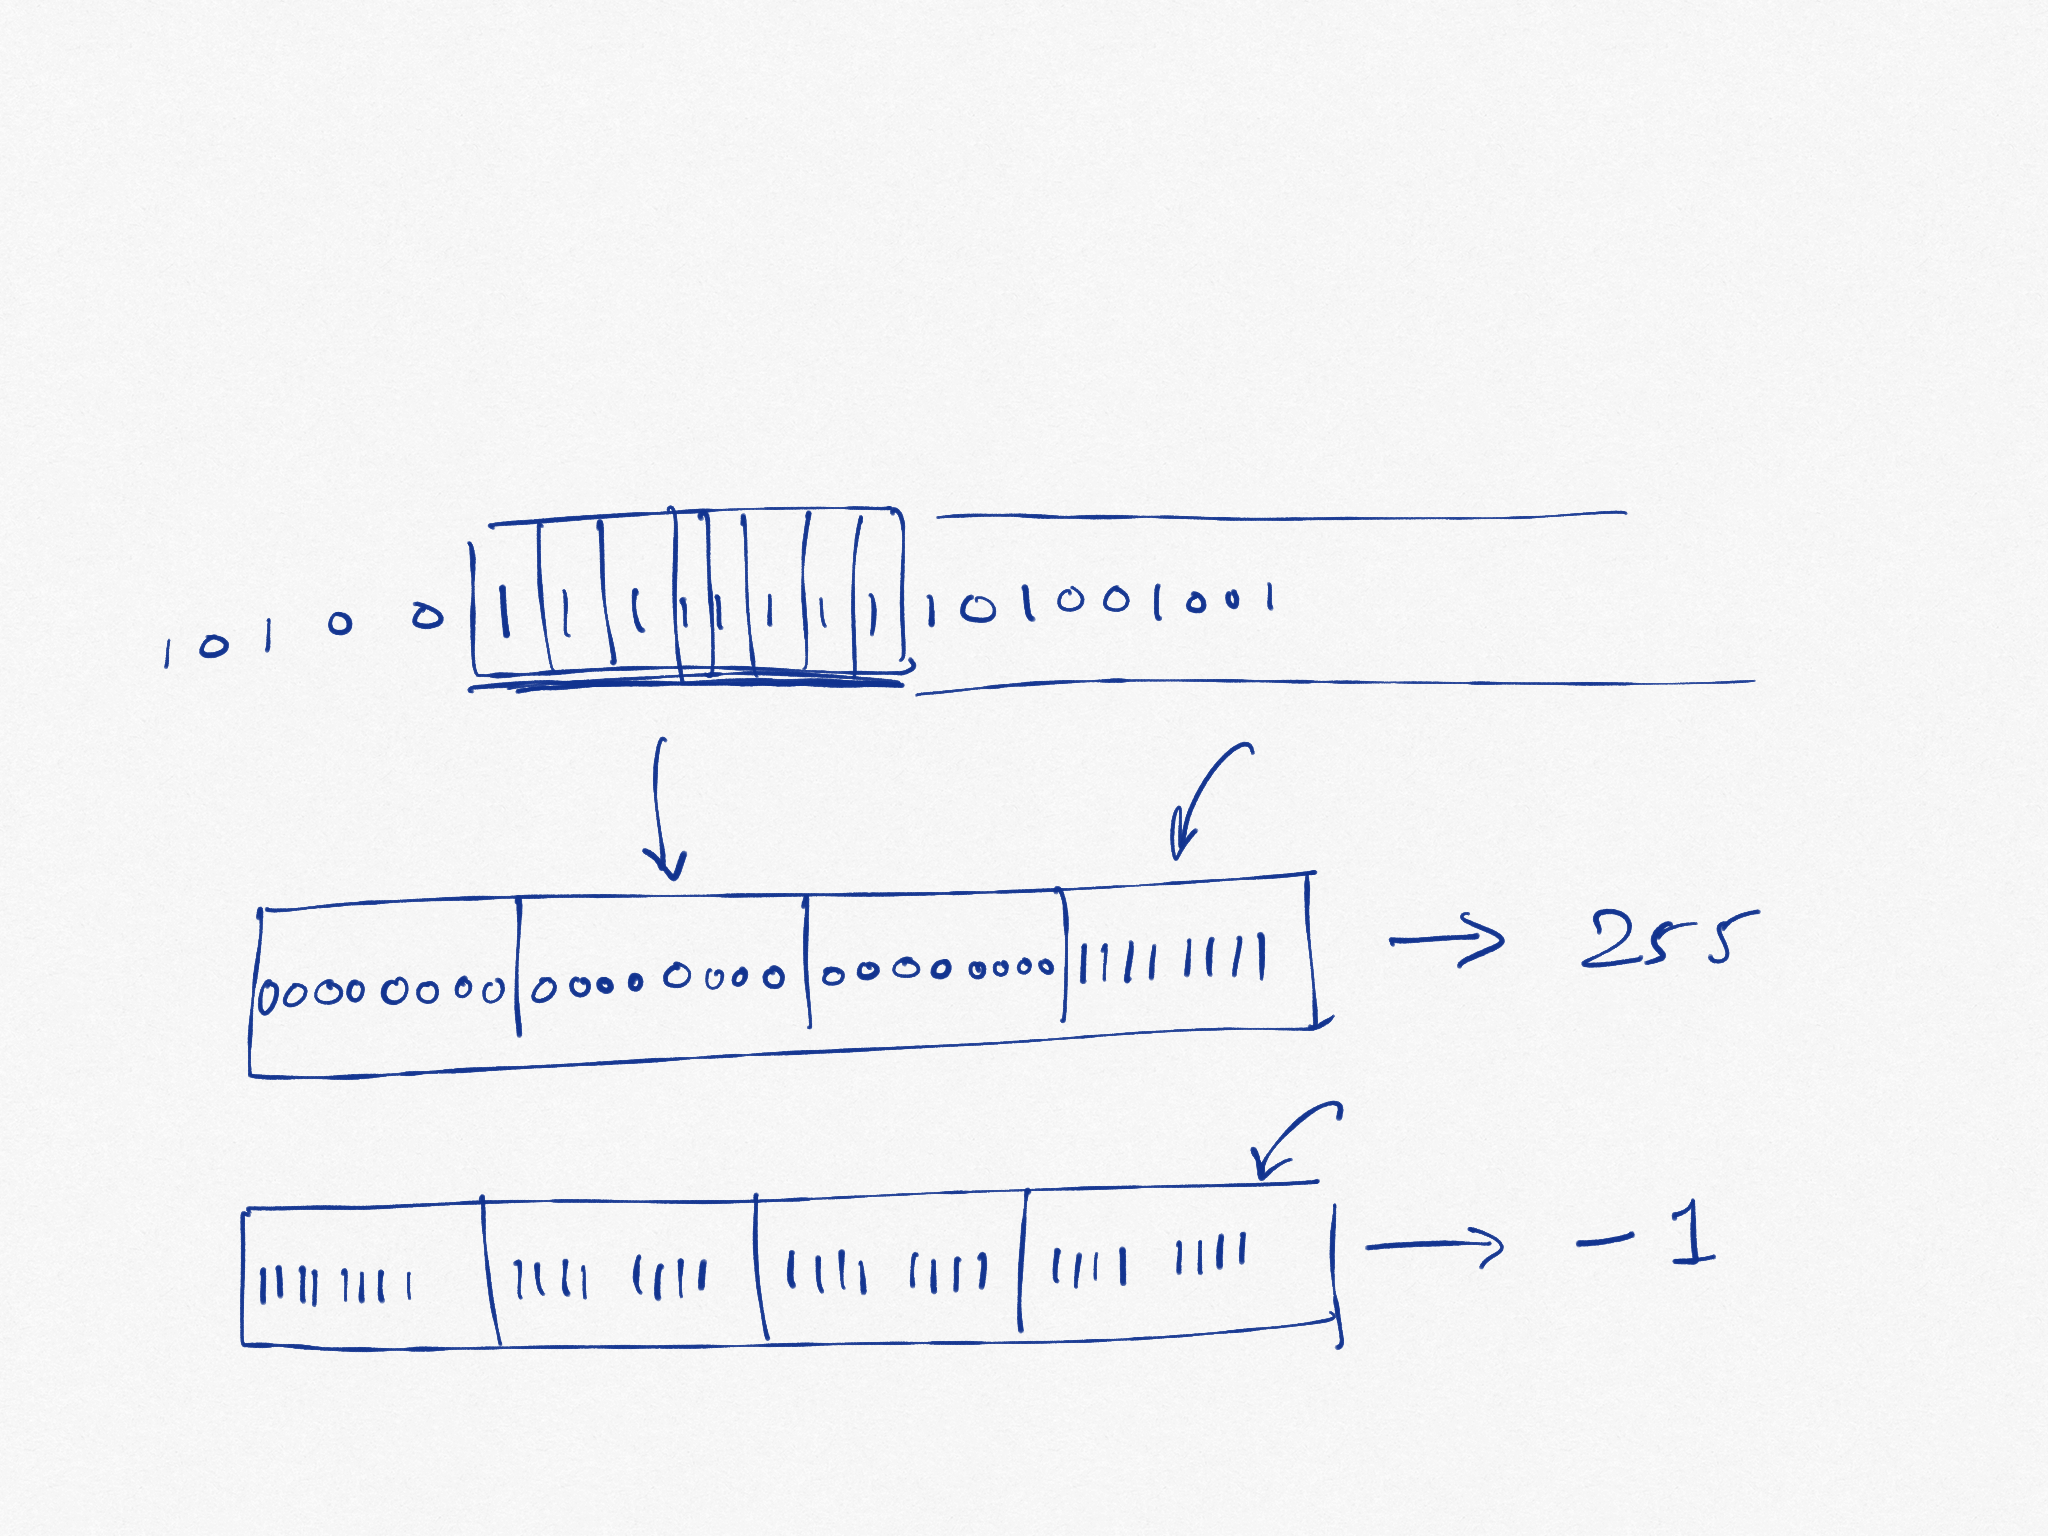 1 0 1 0 0 1 1 1 1 1 1 1 1 1 0 1 0 0 1 0 0 1
00000000 00000000 00000000 11111111 → 255
11111111 11111111 11111111 11111111 → -1